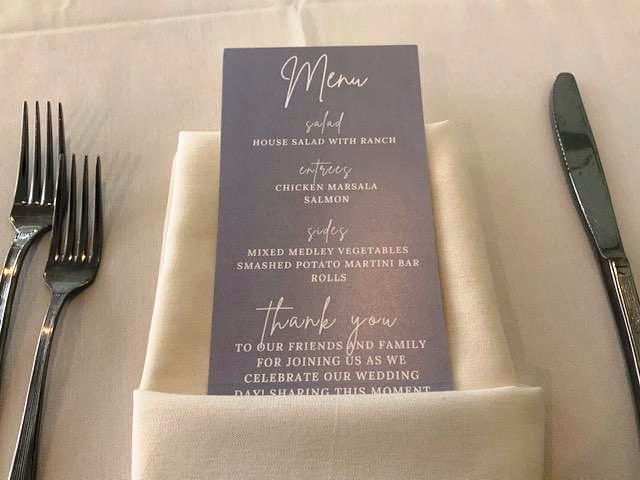 Menu
salad
HOUSE SALAD WITH RANCH
entrees
CHICKEN MARSALA
SALMON
sides
MIXED MEDLEY VEGETABLES
SMASHED POTATO MARTINI BAR
ROLLS
thank you
TO OUR FRIENDS AND FAMILY
FOR JOINING US AS WE
CELEBRATE OUR WEDDING
DAY! SHARING THIS MOMENT